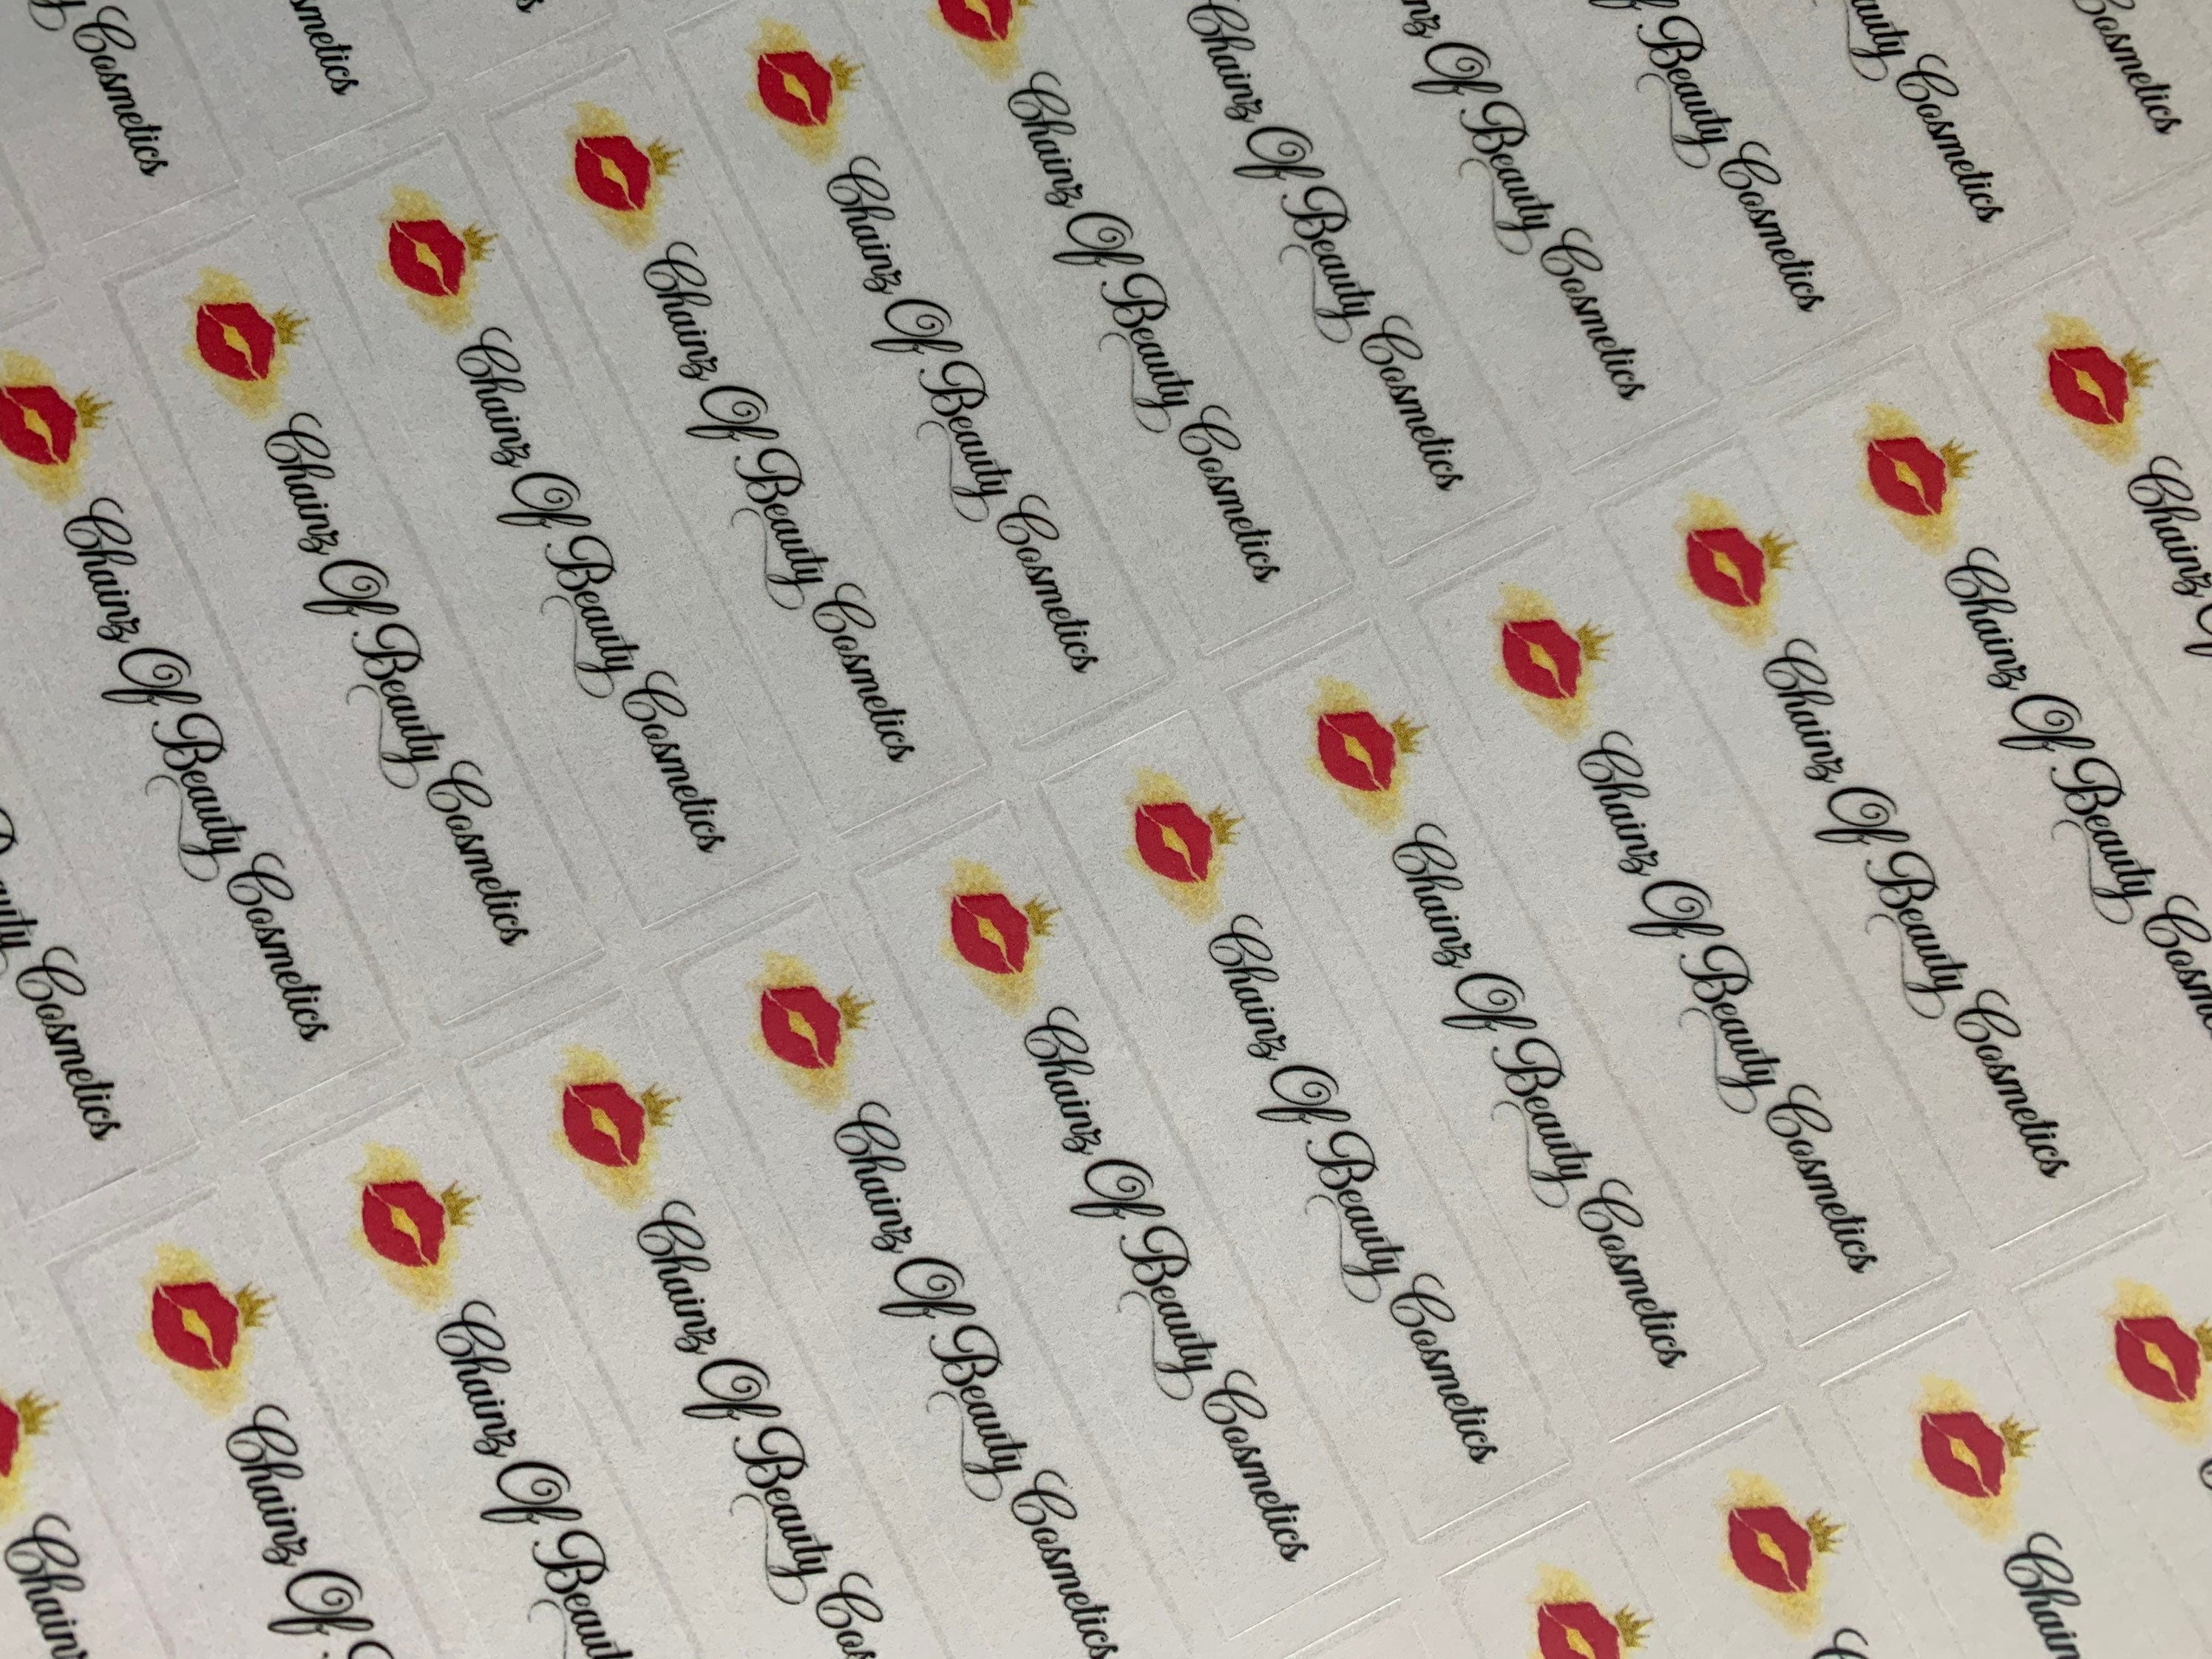 Cosmetics
Chainz Of Beauty Cosmetics
Chainz Of Beauty Cosmetics
Chainz Of Beauty Cosmetics
Chainz Of Beauty Cosmetics
Chainz Of Beauty Cosmetics
Chainz Of Beauty Cosmetics
Chainz Of Beauty Cosmetics
Of Beauty Cosmetics
Beauty Cosmetics
Cosmetics
Cosmetics
Cosmetics
Chainz Of
Chainz Of
Chainz Of Beauty
Chainz Of Beauty Cosmetics
Chainz Of Beauty Cosmetics
Chainz Of Beauty Cosmetics
Chainz Of Beauty Cosmetics
Chainz Of Beauty Cosmetics
Chainz Of Beauty Cosmetics
Chainz Of Beauty
Chainz